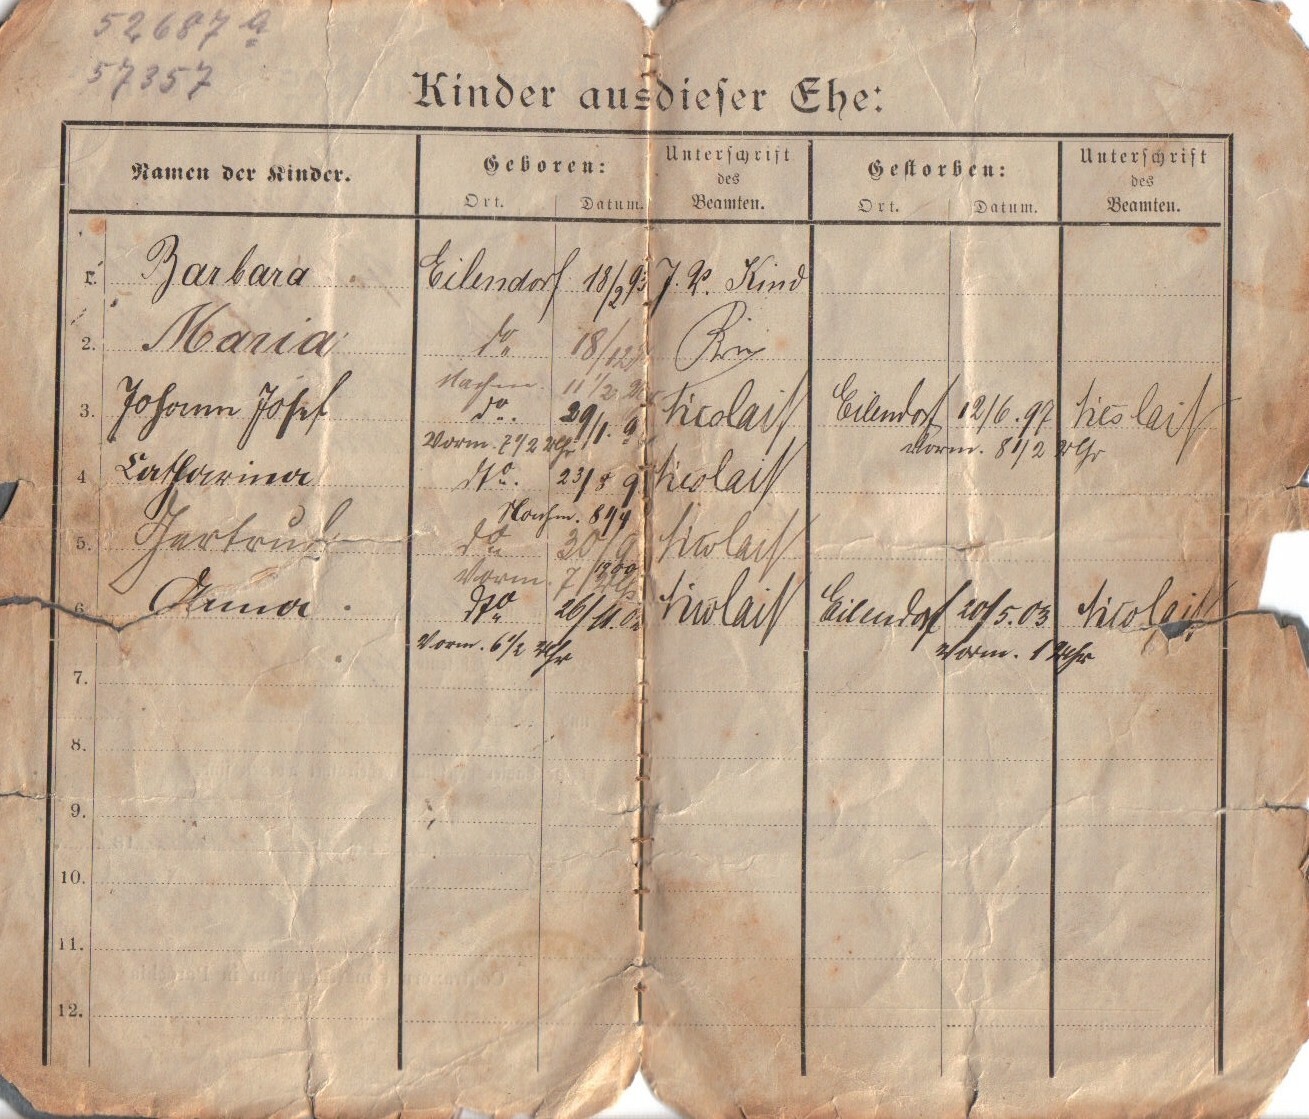 52687 a
57357
Kinder aus dieser Ehe:
Namen der Kinder. Geboren: Unterschrift des Beamten. Gestorben: Unterschrift des Beamten.
Ort. Datum. Ort. Datum.
1. Barbara Eilendorf 18/2 93 J. P. Kind
2. Maria do 18/12
Nachm. 11 1/2 Uhr
3. Johann Josef do. 29/1. 9 Nicolait Eilendorf 12/6. 97 Nicolait
Vorm. 7 1/2 Uhr Vorm. 8 1/2 Uhr
4 Catharina dto. 23/8 9 Nicolait
Nachm. 8 1/4
5. Gertrud do 30/9 1900 Nicolait
Vorm. 7 Uhr
6. Anna dto 26/11. 02 Nicolait Eilendorf 20/5. 03 Nicolait
Vorm. 6 1/2 Uhr Vorm. 1 Uhr
7.
8.
9.
10.
11.
12.